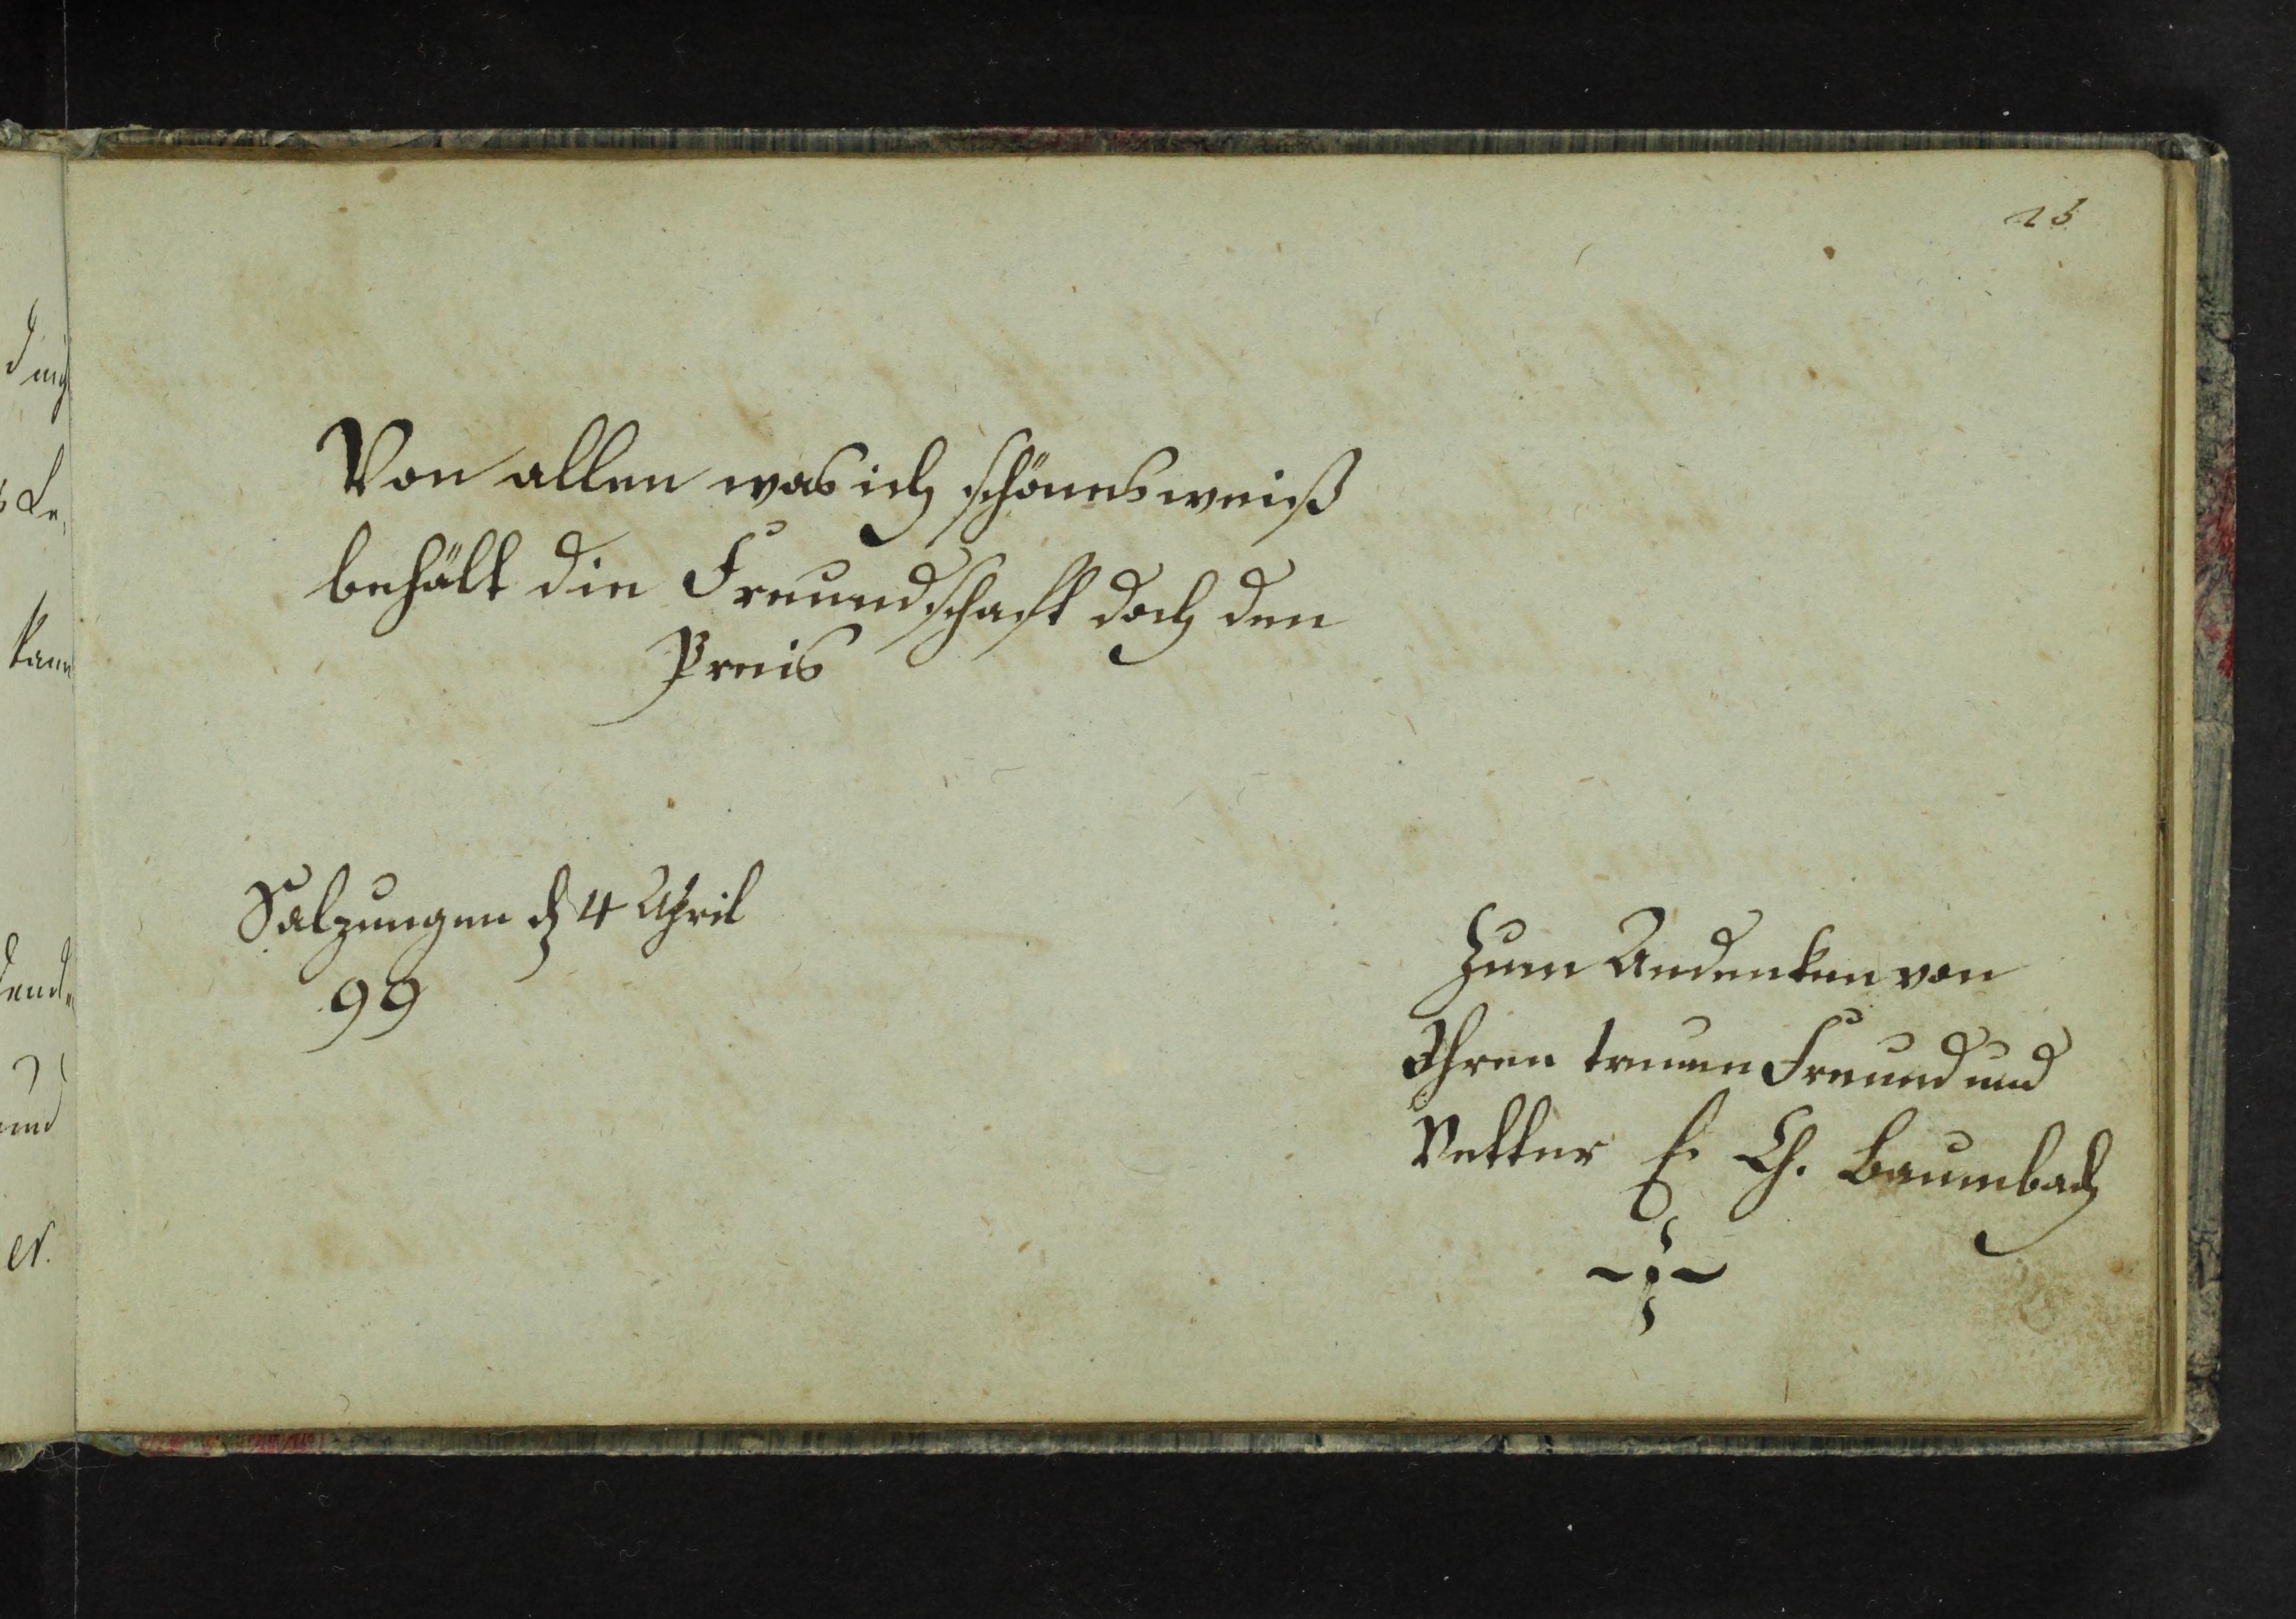 23
Von allen was ich schönes weiß
behält die Freundschaft doch den
Preis
Salzungen d 4 April
99
Zum Andenken von
Ihren treuen Freund und
Vetter E. Ch. Baumbach